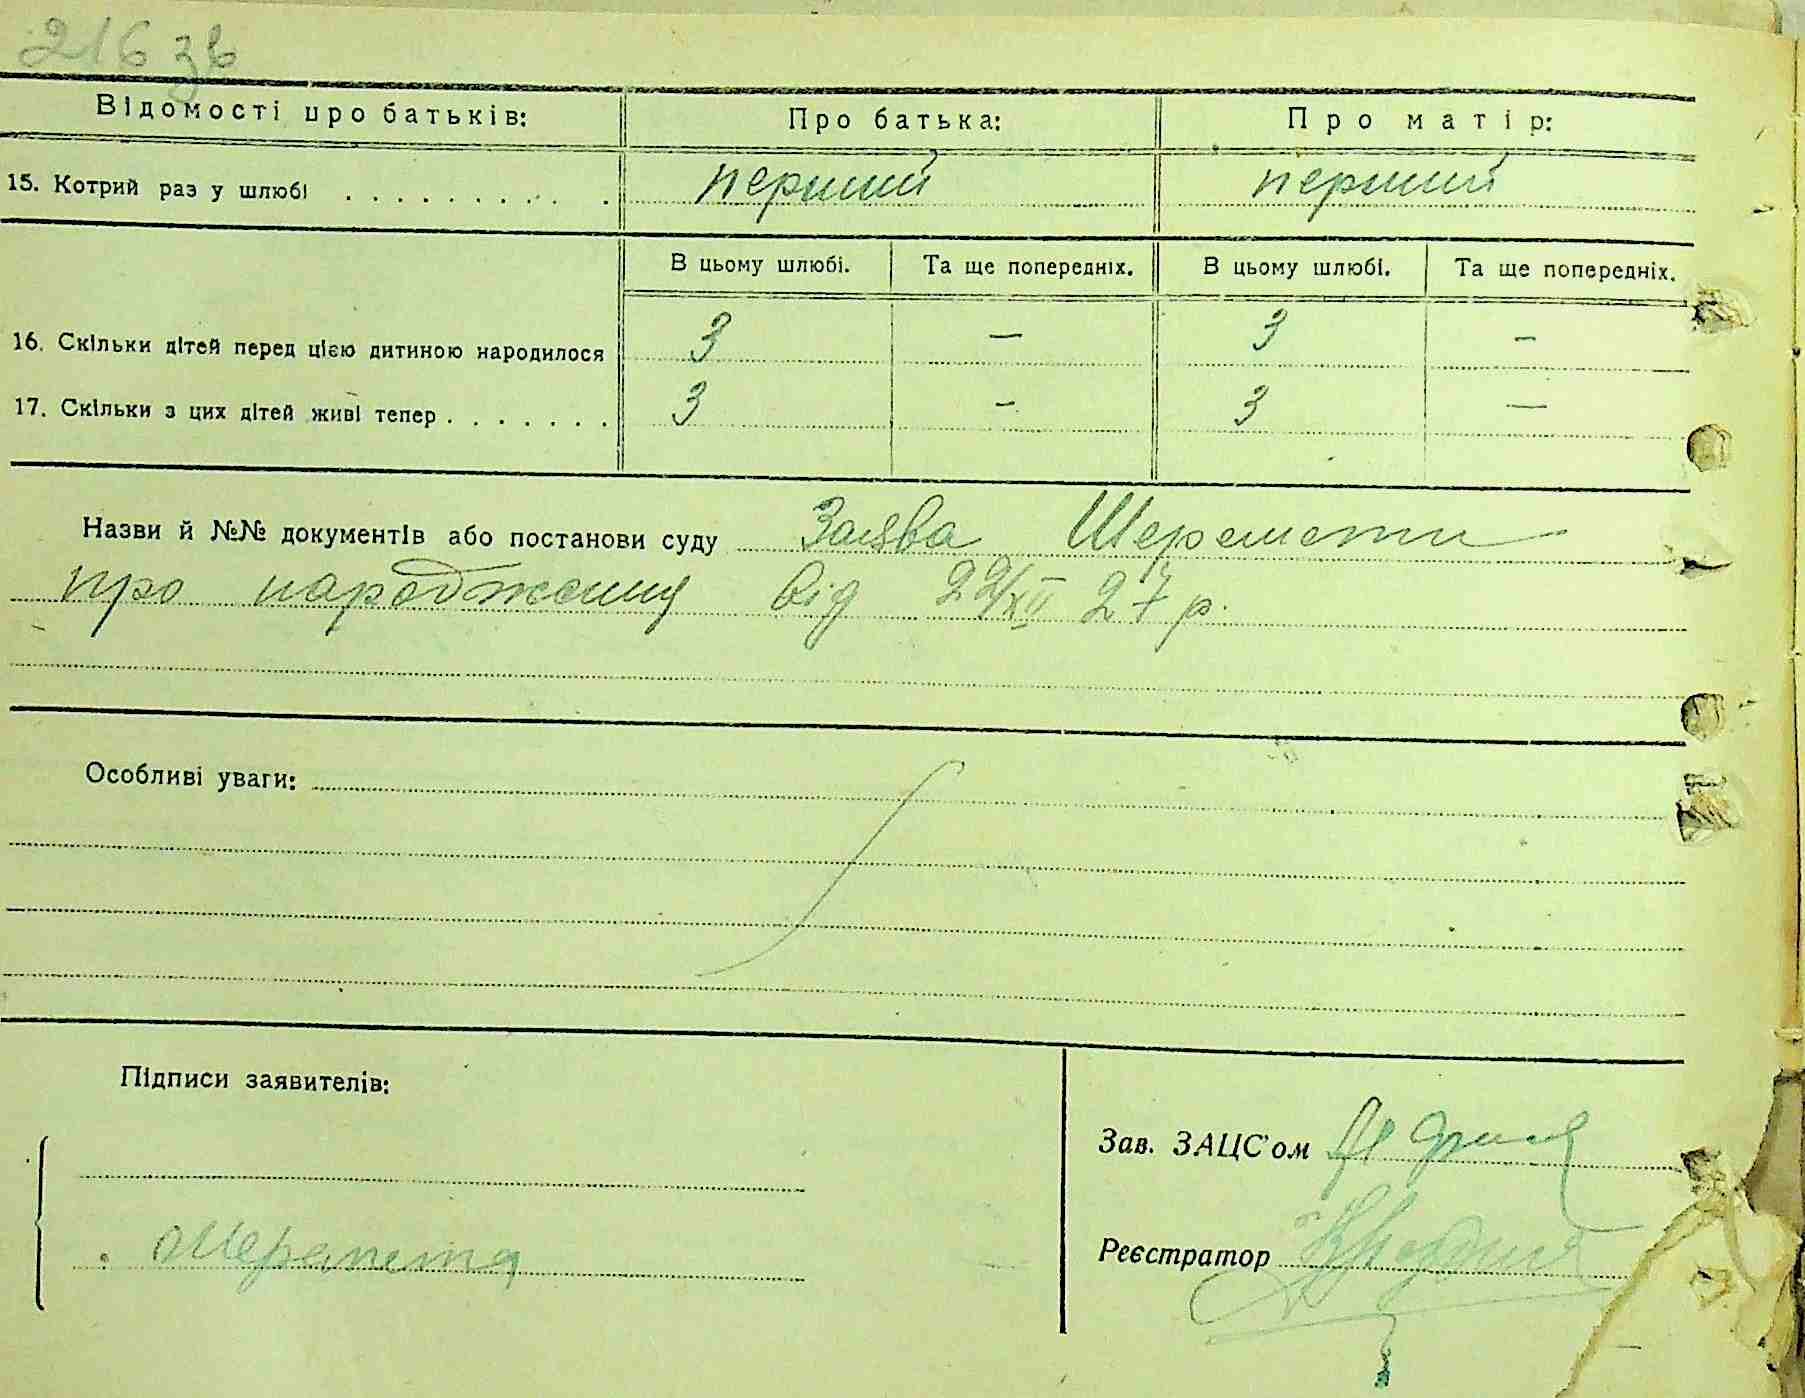 216 зв
Відомості про батьків: Про батька: Про матір:
15. Котрий раз у шлюбі . . . . . . . . . . . перший перший
В цьому шлюбі. Та ще попередніх. В цьому шлюбі. Та ще попередніх.
16. Скільки дітей перед цією дитиною народилося 3 — 3 —
17. Скільки з цих дітей живі тепер . . . . . . . 3 — 3 —
Назви й №№ документів або постанови суду Заява Шеремети
про народження від 22/XII 27 р.
Особливі уваги:
Підписи заявителів:
Зав. ЗАЦС'ом
Шеремета
Реєстратор